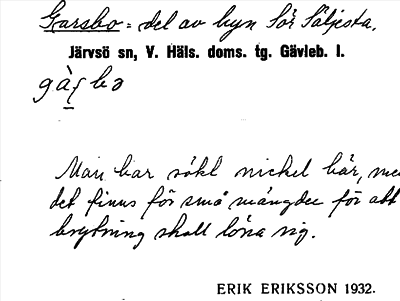 Garsbo = del av byn Sör Säljesta.
Järvsö sn, V. Häls. doms. tg. Gävleb. l.
Man har sökt nickel här, me
det finns för små mängder för att
brytning skall löna sig.
ERIK ERIKSSON 1932.